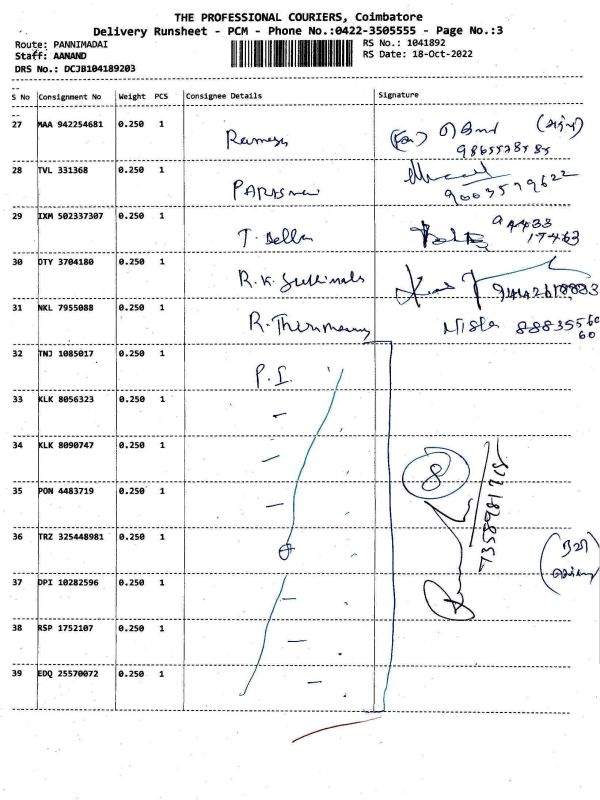 THE PROFESSIONAL COURIERS, Coimbatore
Delivery Runsheet - PCM - Phone No.:0422-3505555 - Page No.:3
Route: PANNIMADAI
RS No.: 1041892
Staff: AANAND
RS Date: 18-Oct-2022
DRS No.: DCJB104189203
S No Consignment No Weight PCS Consignee Details Signature
27 MAA 942254681 0.250 1 Ramesh
28 TVL 331368 0.250 1 9003579622
29 IXM 502337307 0.250 1 T. Bella 94433
17463
30 OTY 3704180 0.250 1 R.K.
31 NKL 7955088 0.250 1 88835560
60
32 TNJ 1085017 0.250 1 P.I.
33 KLK 8056323 0.250 1 -
34 KLK 8090747 0.250 1 -
35 PON 4483719 0.250 1 -
8
36 TRZ 325448981 0.250 1
37 DPI 10282596 0.250 1 -
38 RSP 1752107 0.250 1 -
39 EDQ 25570072 0.250 1 -